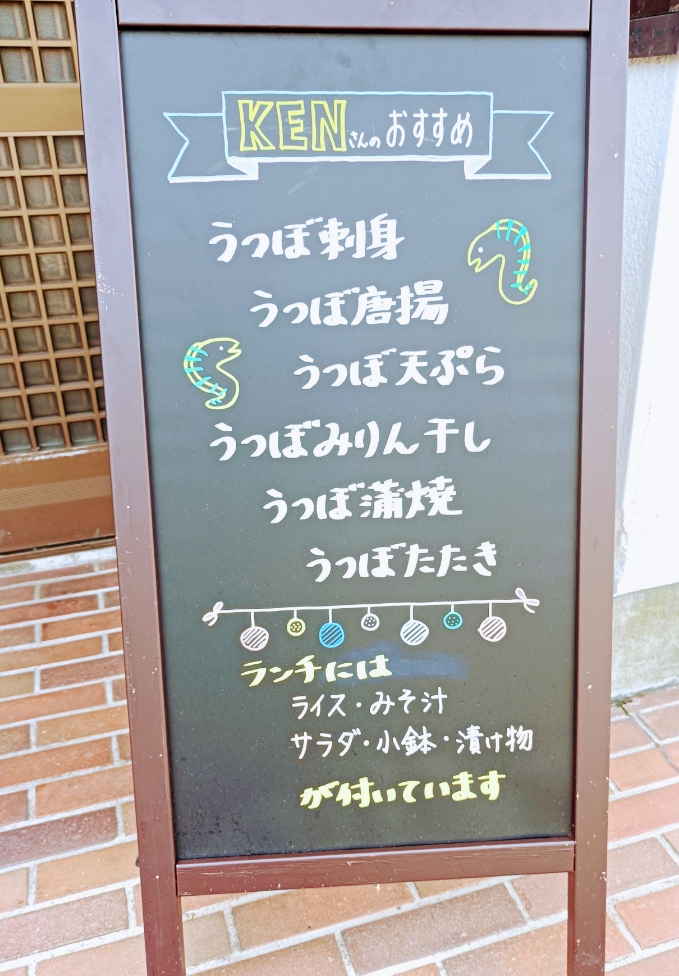 KENさんのおすすめ
うつぼ刺身
うつぼ唐揚
うつぼ天ぷら
うつぼみりん干し
うつぼ蒲焼
うつぼたたき
ランチには
ライス・みそ汁
サラダ・小鉢・漬け物
が付いています